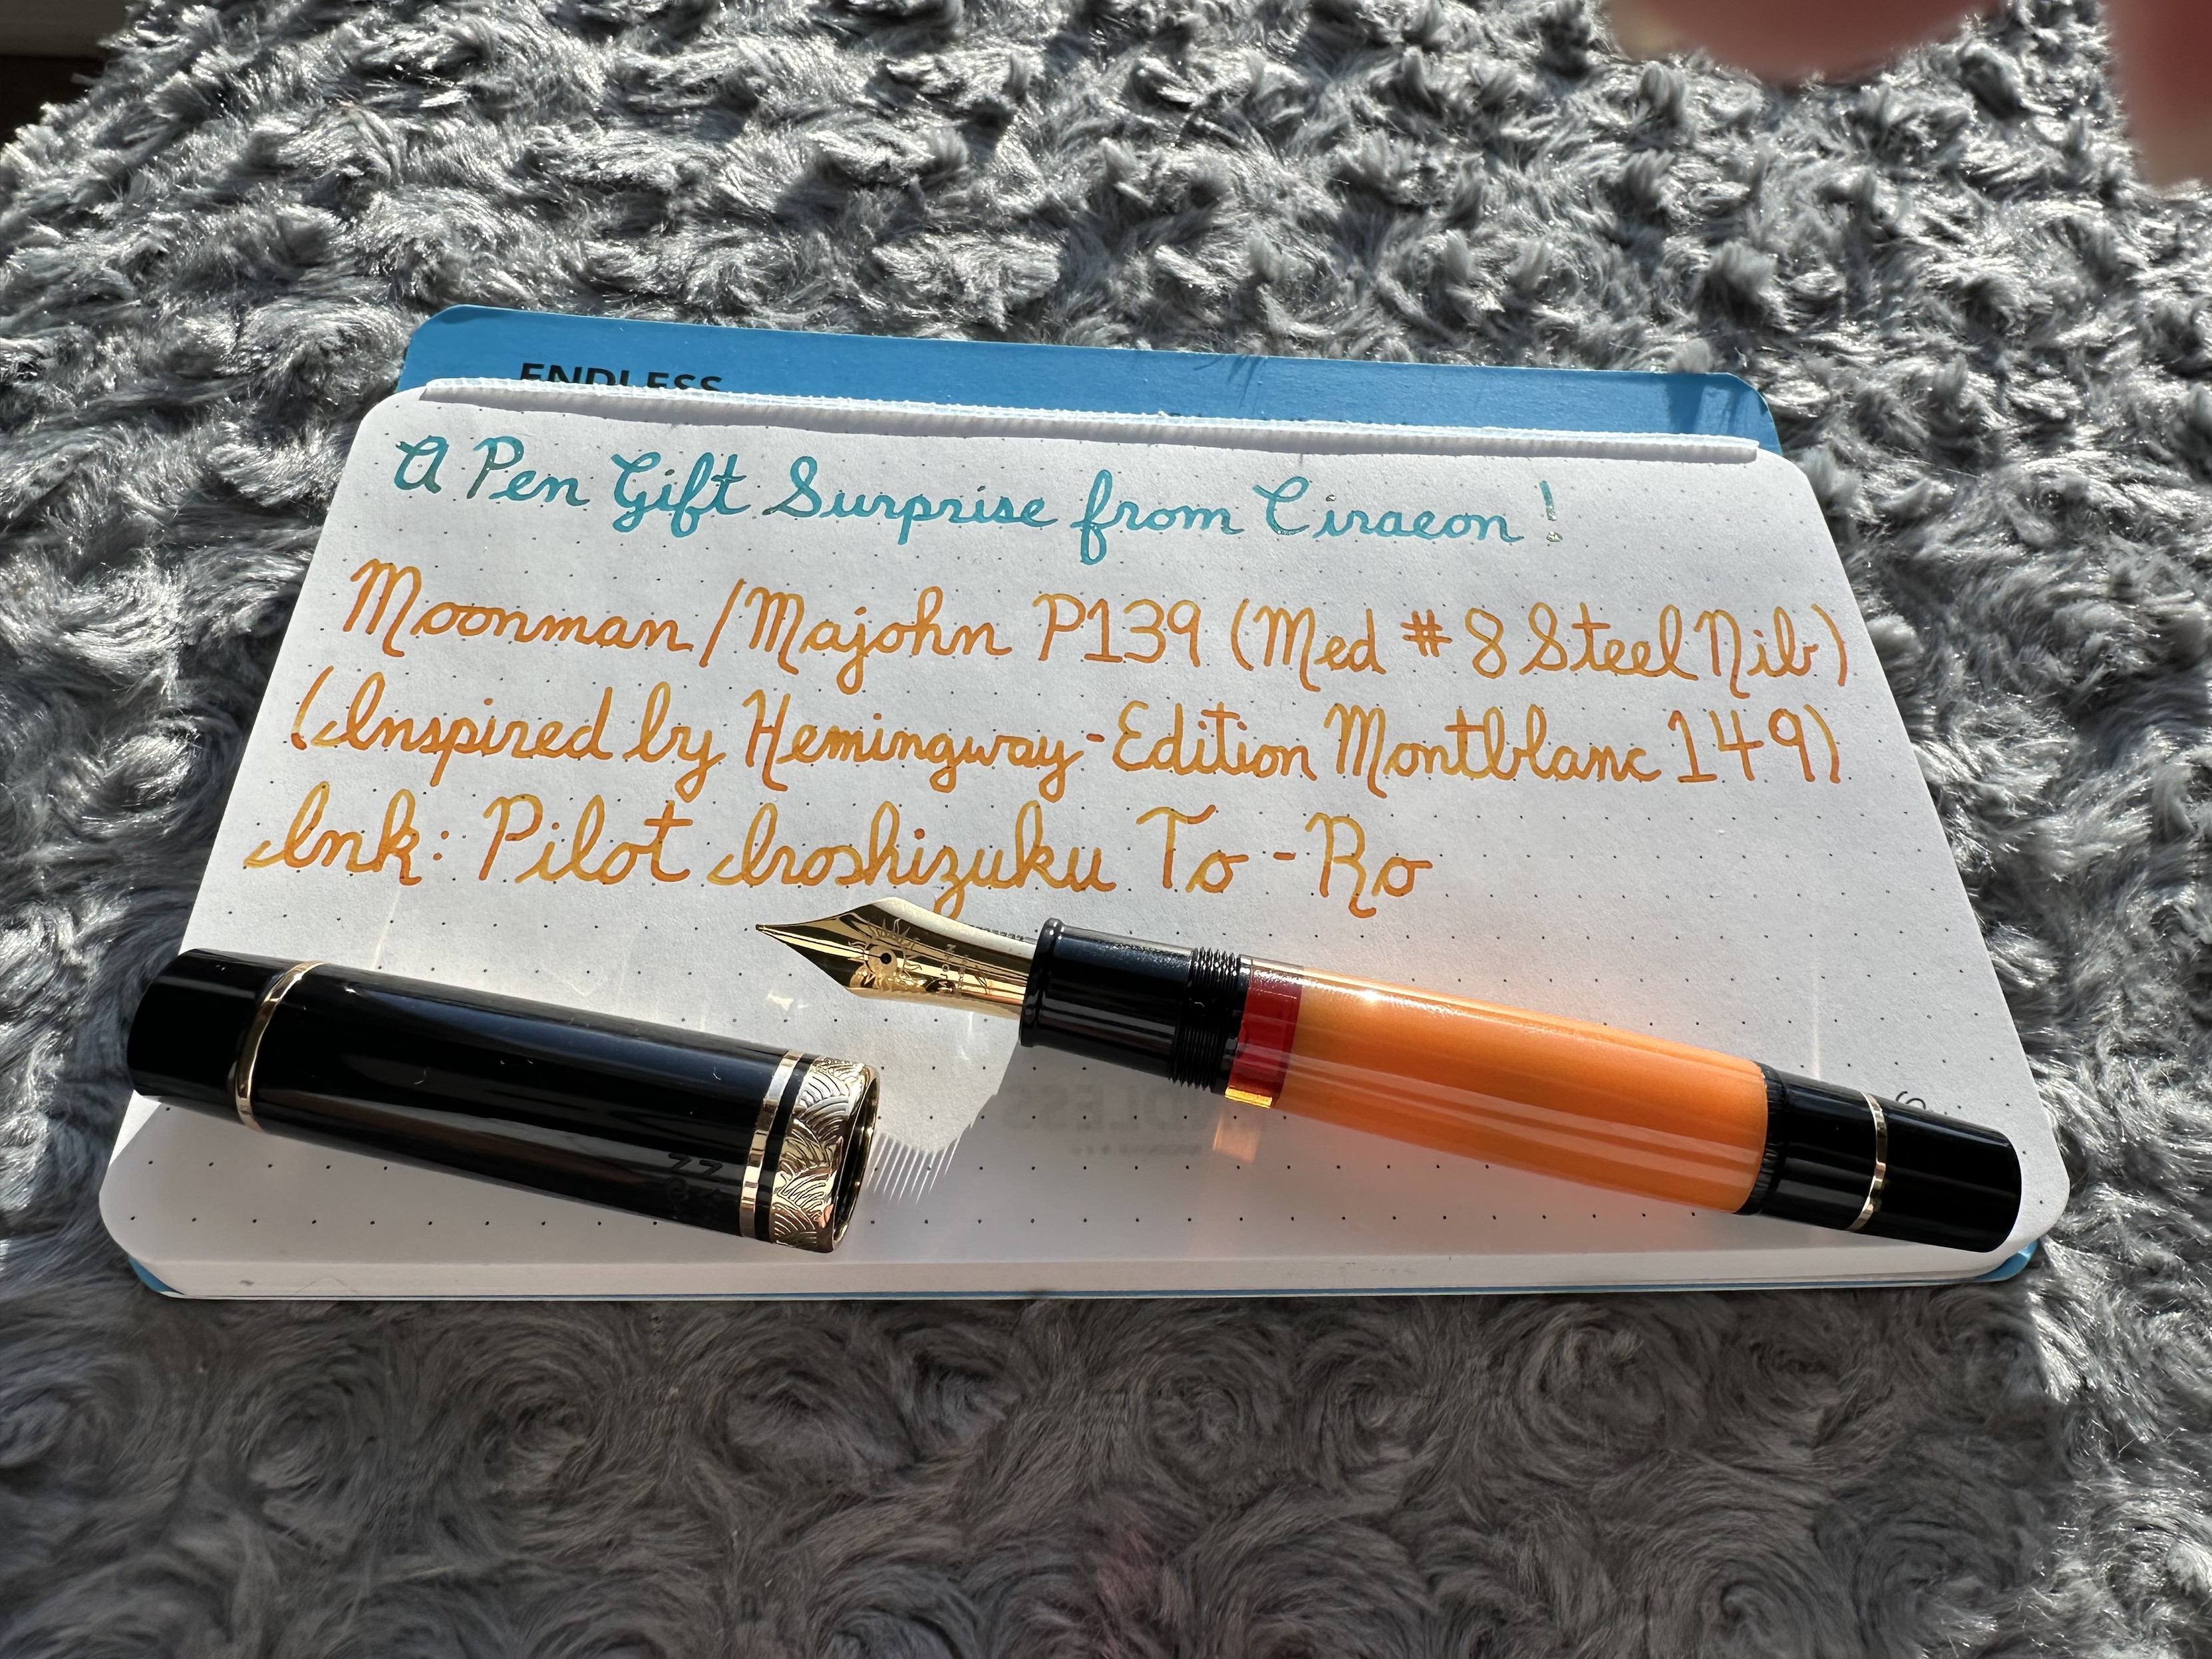 ENDLESS
A Pen Gift Surprise from Ciraeon!
Moonman/Majohn P139 (Med #8 Steel Nib)
(Inspired by Hemingway-Edition Montblanc 149)
Ink: Pilot Iroshizuku To-Ro